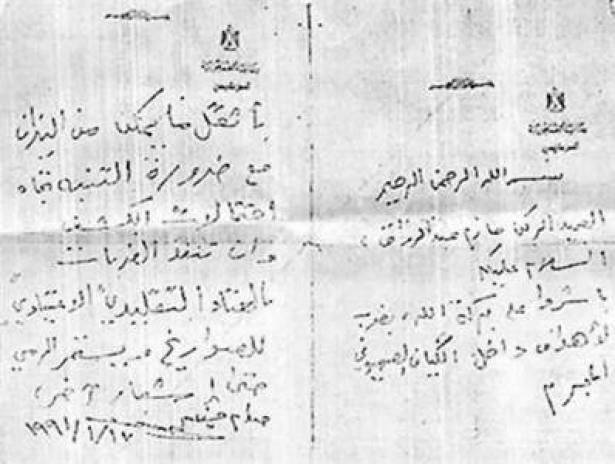 بسم الله الرحمن الرحيم
العميد الركن حازم عبد الرزاق
السلام عليكم
باشروا على بركة الله بضرب
الأهداف داخل الكيان الصهيوني
المجرم
بأثقل ما يمكن من النيران
مع ضرورة التنبه تجاه
احتمالات الكشف
وان تنفذ الضربات
بالعتاد التقليدي الاعتيادي
للصواريخ ويستمر الرمي
حتى إشعار آخر
صدام حسين
١٩٩١/١/١٧